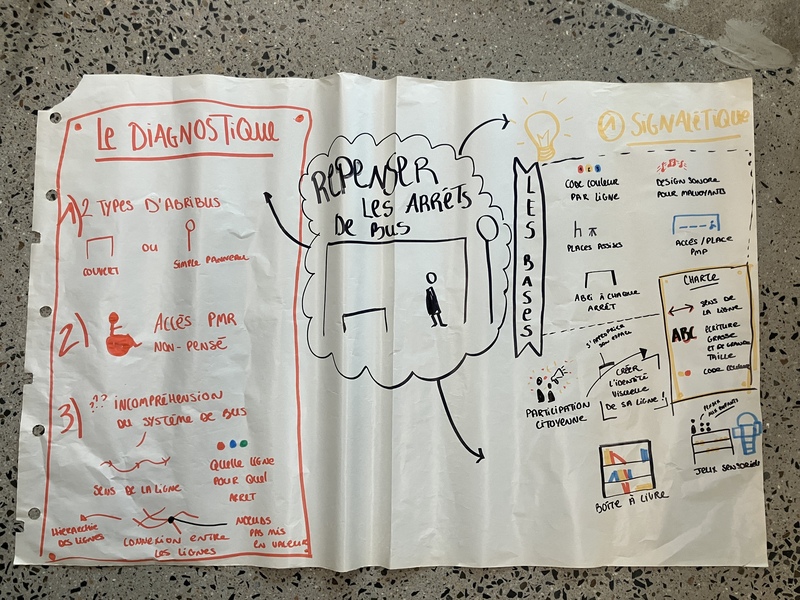 LE DIAGNOSTIQUE
1) 2 TYPES D'ABRIBUS
COUVERT
OU
SIMPLE PANNEAU
2) ACCÈS PMR
NON-PENSÉ
3) ?? INCOMPRÉHENSION
DU SYSTÈME DE BUS
SENS DE LA LIGNE
QUELLE LIGNE
POUR QUEL
ARRET
HIERARCHIE
DES LIGNES
CONNEXION ENTRE
LES LIGNES
NOEUDS
PAS MIS
EN VALEUR
REPENSER
LES ARRÊTS
DE BUS
LES BASES
1 SIGNALÉTIQUE
CODE COULEUR
PAR LIGNE
DESIGN SONORE
POUR MALVOYANTS
PLACES ASSISES
ACCÈS / PLACE
PMR
ABRI À CHAQUE
ARRÊT
CHARTE
SENS DE
LA LIGNE
ABC
ÉCRITURE
GRASSE
ET DE GRANDE
TAILLE
CODE COULEUR
PARTICIPATION
CITOYENNE
S'APPROPRIER
SON ESPACE
CRÉER
L'IDENTITÉ
VISUELLE
DE SA LIGNE !
BOÎTE À LIVRE
AUX ENFANTS
JEUX SENSORIELS